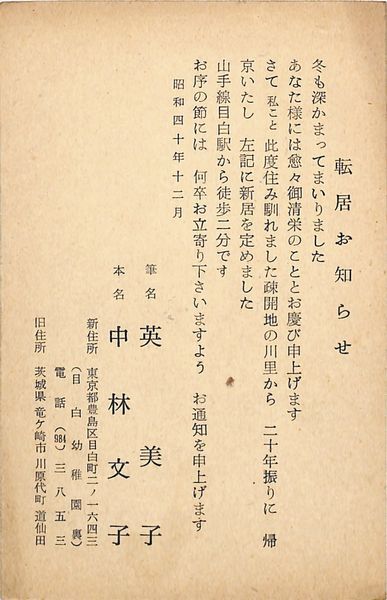 転居お知らせ
冬も深かまってまいりました
あなた様には愈々御清栄のこととお慶び申上げます
さて 私こと 此度住み馴れました疎開地の川里から 二十年振りに 帰
京いたし 左記に新居を定めました
山手線目白駅から徒歩二分です
お序の節には 何卒お立寄り下さいますよう お通知を申上げます
昭和四十年十二月
筆名 英美子
本名 中林文子
新住所 東京都豊島区目白町二ノ一六四三
(目白幼稚園裏)
電話(984)三八五三
旧住所 茨城県竜ケ崎市川原代町道仙田